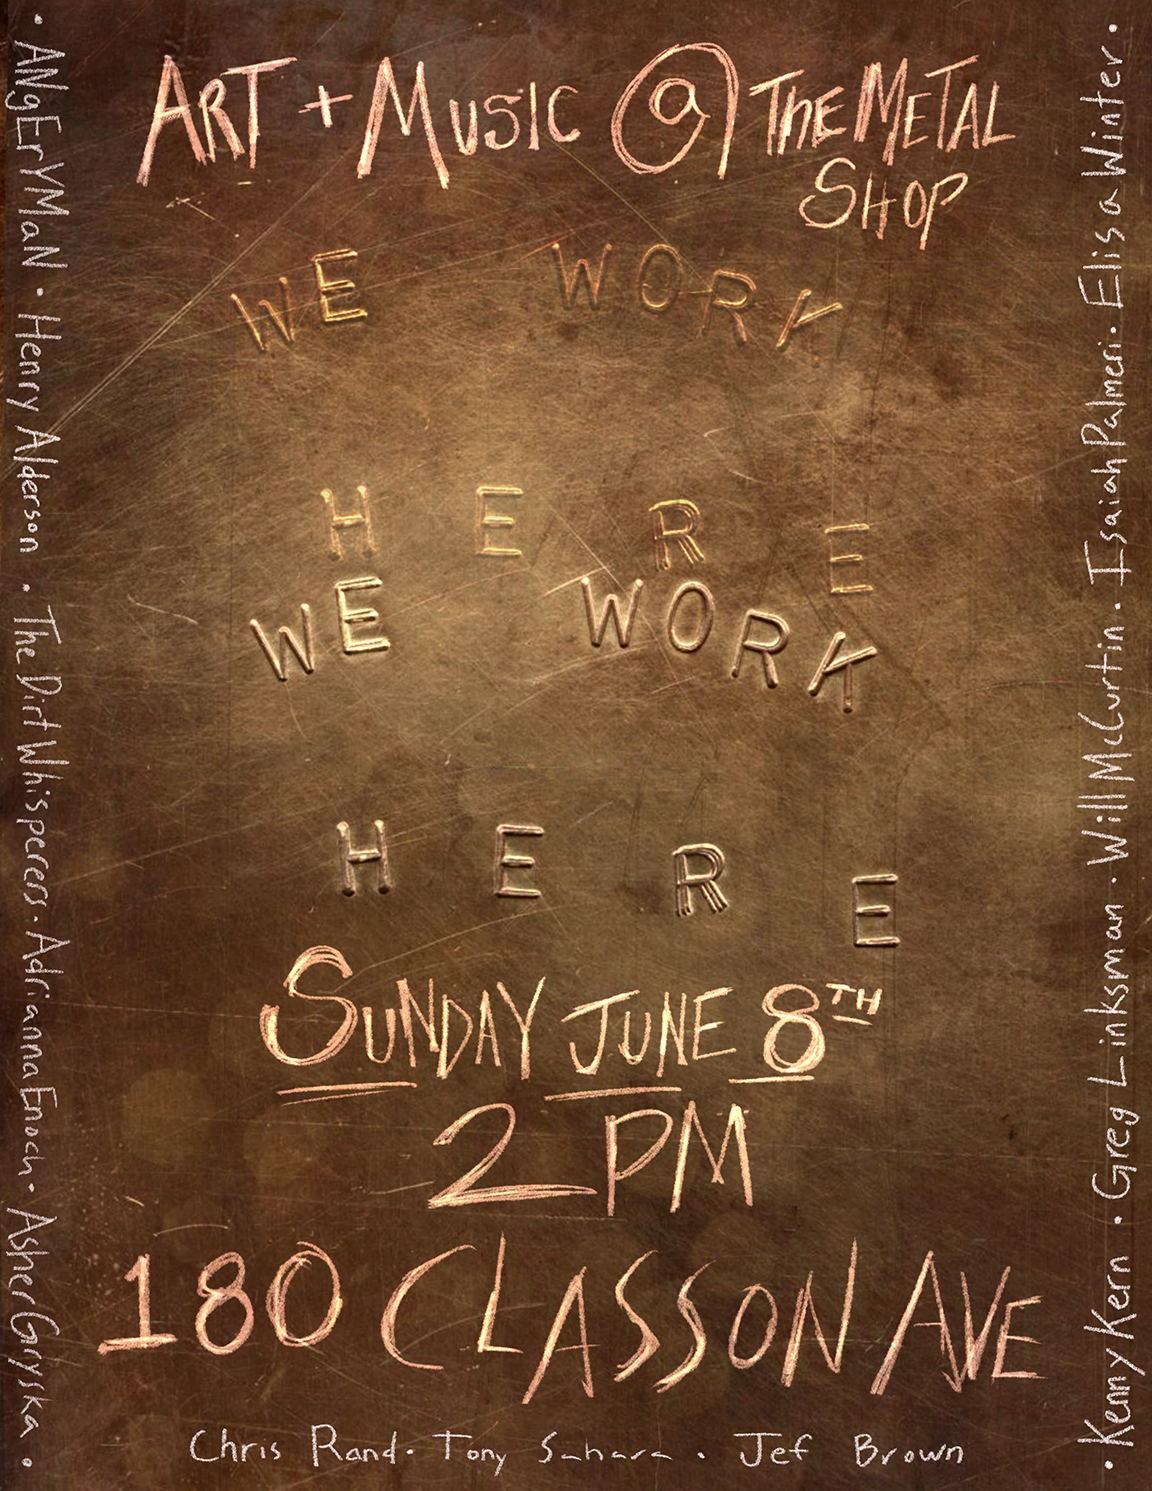 ART + MUSIC @ THE METAL
SHOP
WE WORK
HERE
WE WORK
HERE
SUNDAY JUNE 8TH
2 PM
180 CLASSON AVE
Chris Rand · Tony Sahara · Jef Brown
· ANgErYMaN · Henry Alderson · The Dirt Whisperers · Adrianna Enoch · Asher Gryska ·
· Kenny Kern · Greg Linksman · Will McCurtin · Isaiah Palmeri · Elisa Winter ·